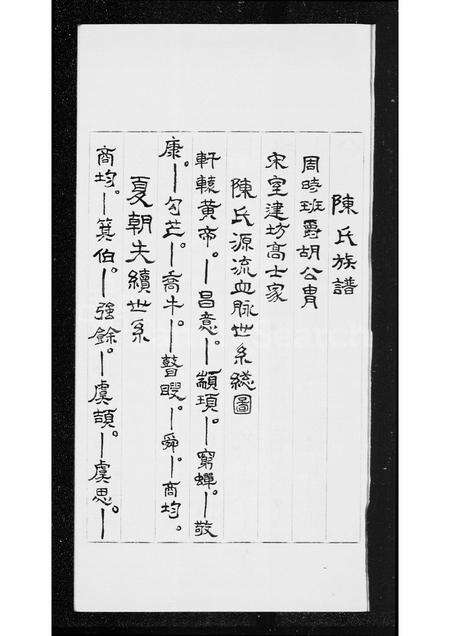 陳氏族譜
周時班爵胡公胄
宋室建坊高士家
陳氏源流血脉世系總圖
軒轅黃帝。—昌意。—顓頊。—窮蟬。—敬
康。—勾芒。—喬牛。—瞽瞍。—舜。—商均。
夏朝夫續世系
商均。—箕伯。—強餘。—虞頡。—虞思。—